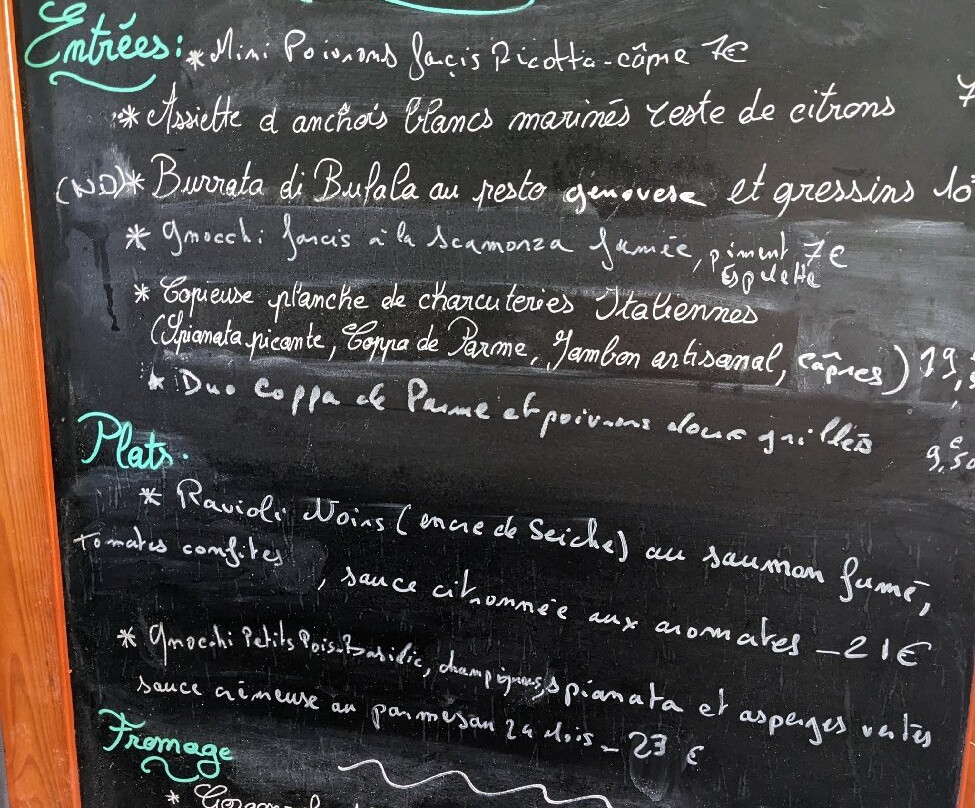 Entrées: * Mini Poivrons farçis Ricotta-câpre 7€
* Assiette d'anchois blancs marinés zeste de citrons 7
(ND)* Burrata di Bufala au pesto génovese et gressins 10
* Gnocchi farcis à la scamonza fumée, piment 7€
Espelette
* Copieuse planche de charcuteries Italiennes
(Spianata picante, Coppa de Parme, Jambon artisanal, câpres) 19,
* Duo Coppa de Parme et poivrons doux grillés 9,50
Plats.
* Ravioli Noirs (encre de Seiche) au saumon fumé,
tomates confites, sauce citronnée aux aromates - 21€
* Gnocchi Petits Pois-Basilic, champignons, spianata et asperges vertes
sauce crèmeuse au parmesan 24 dois - 23 €
Fromage
*